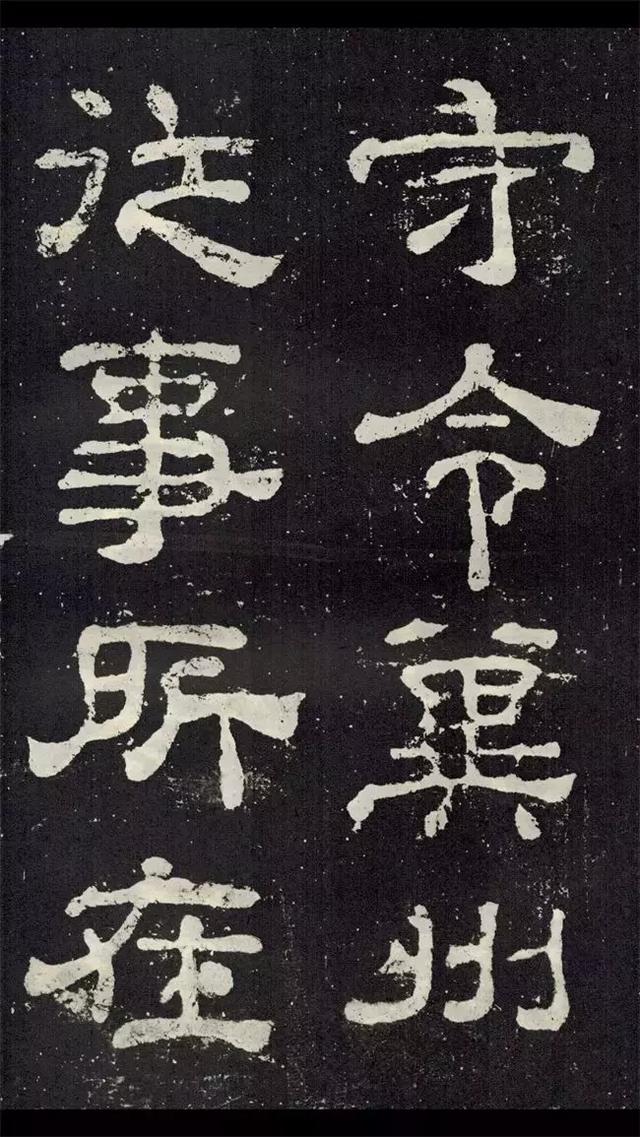 守令冀州
従事所在